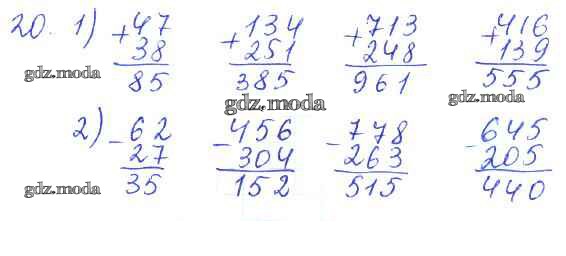 20. 1) + 47 + 134 + 713 + 416
38 251 248 139
gdz.moda 85 385 961 555
gdz.moda gdz.moda
2) - 62 - 456 - 778 - 645
27 304 263 205
gdz.moda 35 152 515 440